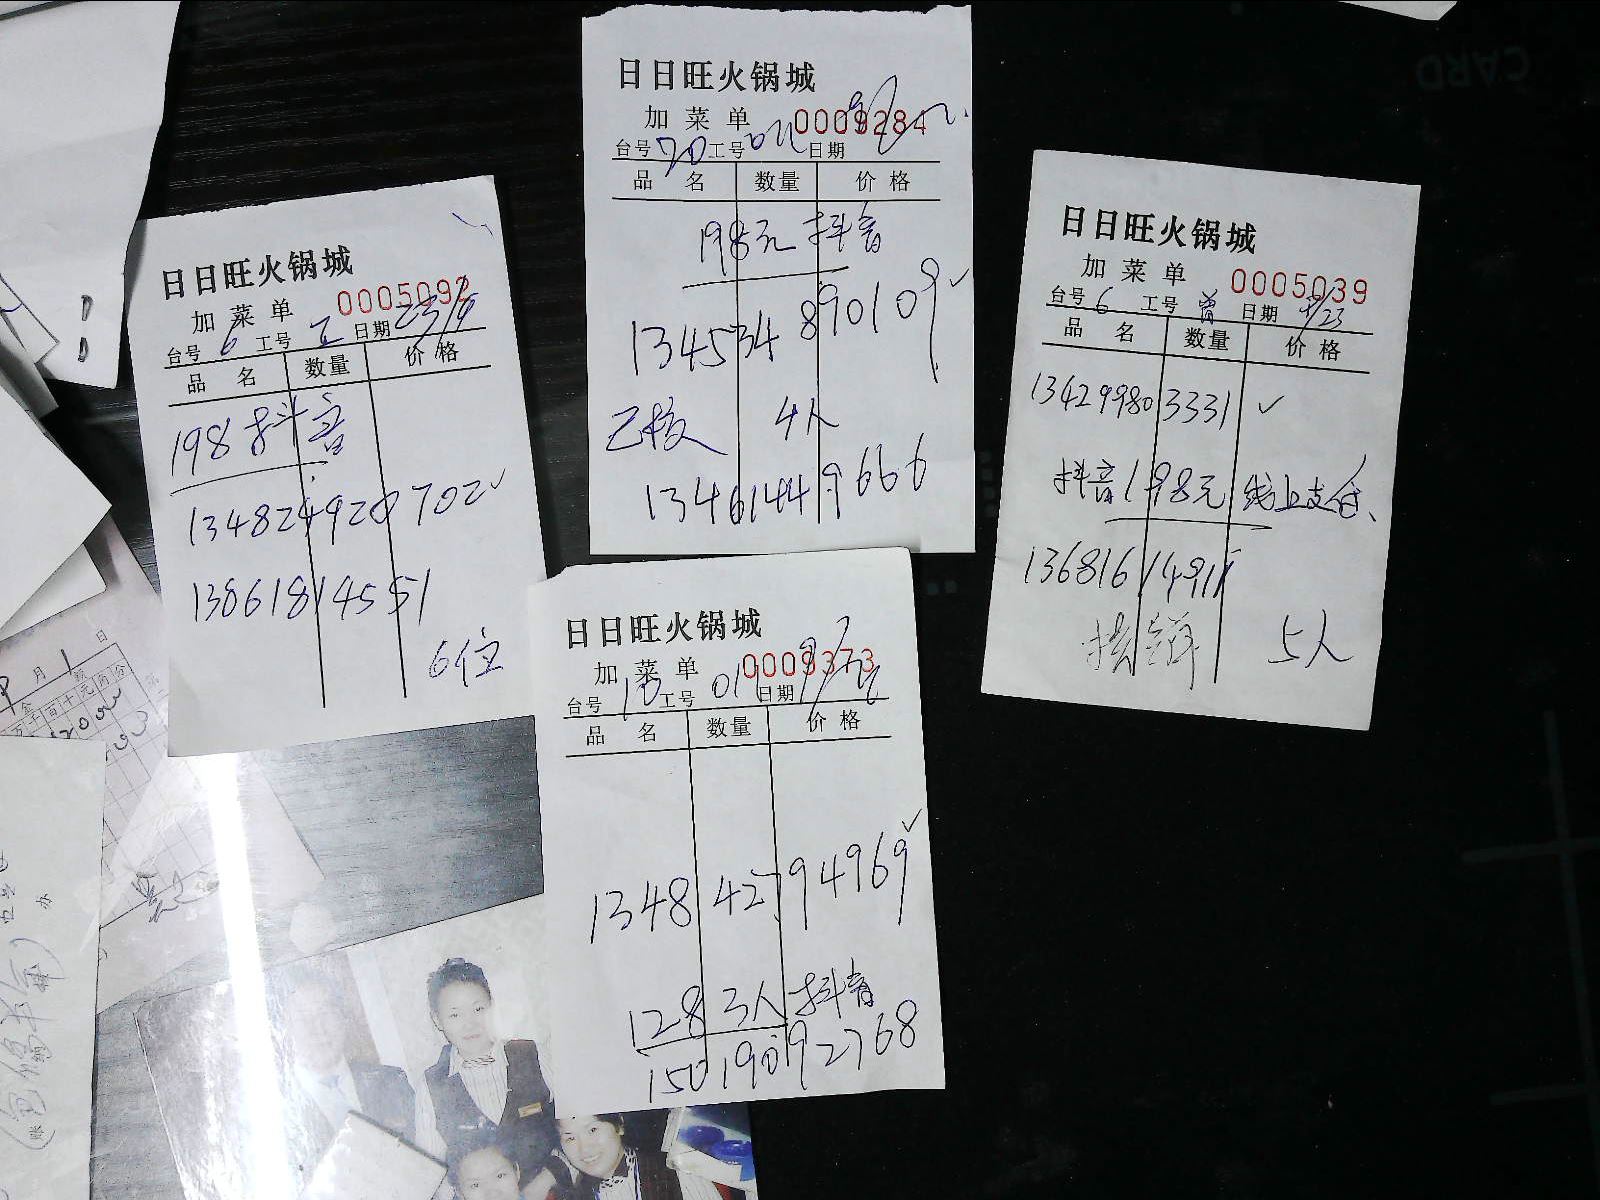 日日旺火锅城
加菜单 0005092
台号 6 工号 日期 23/9
品名 数量 价格
198抖音
134824920702✓
13861814551
6位
日日旺火锅城
加菜单 0009284
台号 20 工号 日期
品名 数量 价格
198元抖音
134534890109✓
已核 4人
13461449666
日日旺火锅城
加菜单 0005039
台号 6 工号 日期 9/23
品名 数量 价格
134299803331 ✓
抖音198元 线上支付、
13681614911
5人
日日旺火锅城
加菜单 0009373
台号 10 工号 011 日期
品名 数量 价格
134842794969✓
128 3人抖音
15019092768
CARD